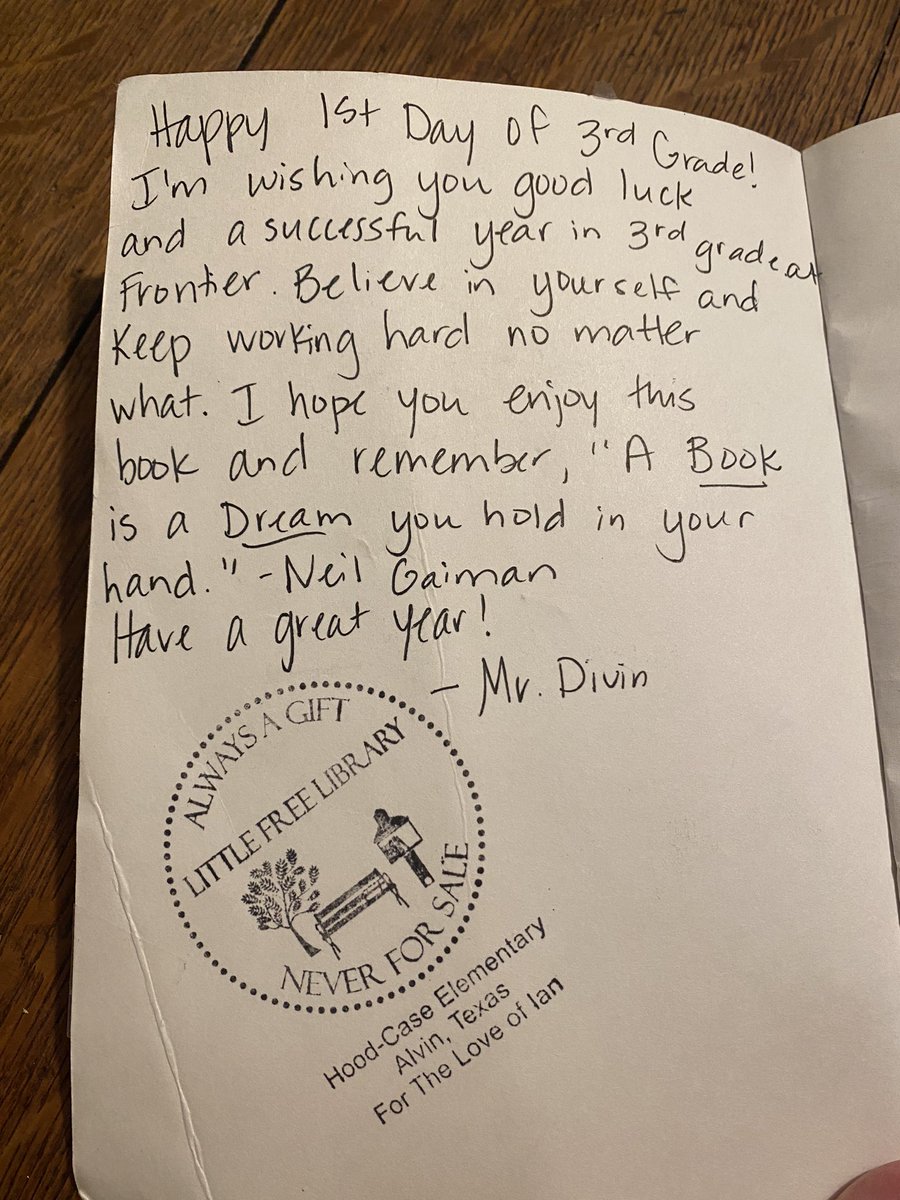 Happy 1st Day of 3rd Grade!
I'm wishing you good luck
and a successful year in 3rd grade at
Frontier. Believe in yourself and
Keep working hard no matter
what. I hope you enjoy this
book and remember, "A Book
is a Dream you hold in your
hand." - Neil Gaiman
Have a great year!
- Mr. Divin
ALWAYS A GIFT
LITTLE FREE LIBRARY
NEVER FOR SALE
Hood-Case Elementary
Alvin, Texas
For The Love of Ian